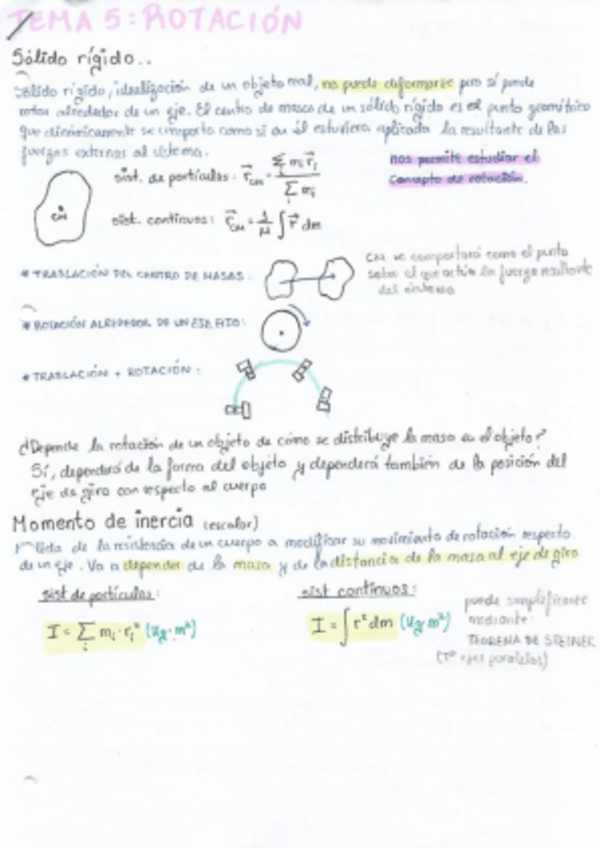 TEMA 5: ROTACIÓN
Sólido rígido..
Sólido rígido, idealización de un objeto real, no puede deformarse pero sí puede
rotar alrededor de un eje. El centro de masas de un sólido rígido es el punto geométrico
que dinámicamente se comporta como si en él estuviera aplicada la resultante de las
fuerzas externas al sistema.
nos permite estudiar el
concepto de rotación.
sist. de partículas: r⃗CM = Σ mi r⃗i / Σ mi
CM
sist. continuos: r⃗CM = 1/M ∫ r⃗ dm
* TRASLACIÓN DEL CENTRO DE MASAS
CM se comportará como el punto
sobre el que actúa la fuerza resultante
del sistema
* ROTACIÓN ALREDEDOR DE UN EJE FIJO:
* TRASLACIÓN + ROTACIÓN:
¿Depende la rotación de un objeto de cómo se distribuye la masa en el objeto?
Sí, dependerá de la forma del objeto y dependerá también de la posición del
eje de giro con respecto al cuerpo
Momento de inercia (escalar)
Medida de la resistencia de un cuerpo a modificar su movimiento de rotación respecto
de un eje. Va a depender de la masa y de la distancia de la masa al eje de giro
sist de partículas:
sist continuos:
I = Σi mi · ri² (kg · m²)
I = ∫ r² dm (kg · m²)
puede simplificarse
mediante:
TEOREMA DE STEINER
(Tº ejes paralelos)